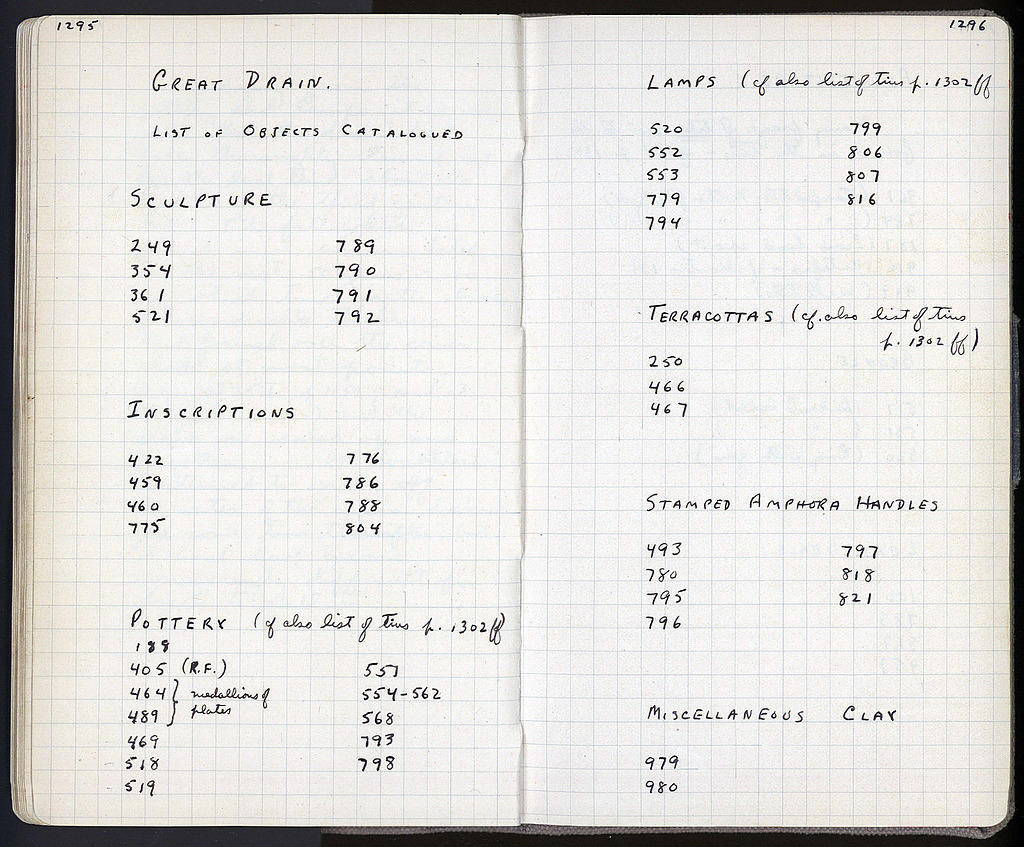 1295
GREAT DRAIN.
LIST OF OBJECTS CATALOGUED
SCULPTURE
249 789
354 790
361 791
521 792
INSCRIPTIONS
422 776
459 786
460 788
775 804
POTTERY (cf also list of tins p. 1302 ff)
188
405 (R.F.) 551
464 } medallions of 554-562
489 } plates 568
469 793
518 798
519
1296
LAMPS (cf also list of tins p. 1302 ff
520 799
552 806
553 807
779 816
794
TERRACOTTAS (cf. also list of tins
p. 1302 ff)
250
466
467
STAMPED AMPHORA HANDLES
493 797
780 818
795 821
796
MISCELLANEOUS CLAY
979
980